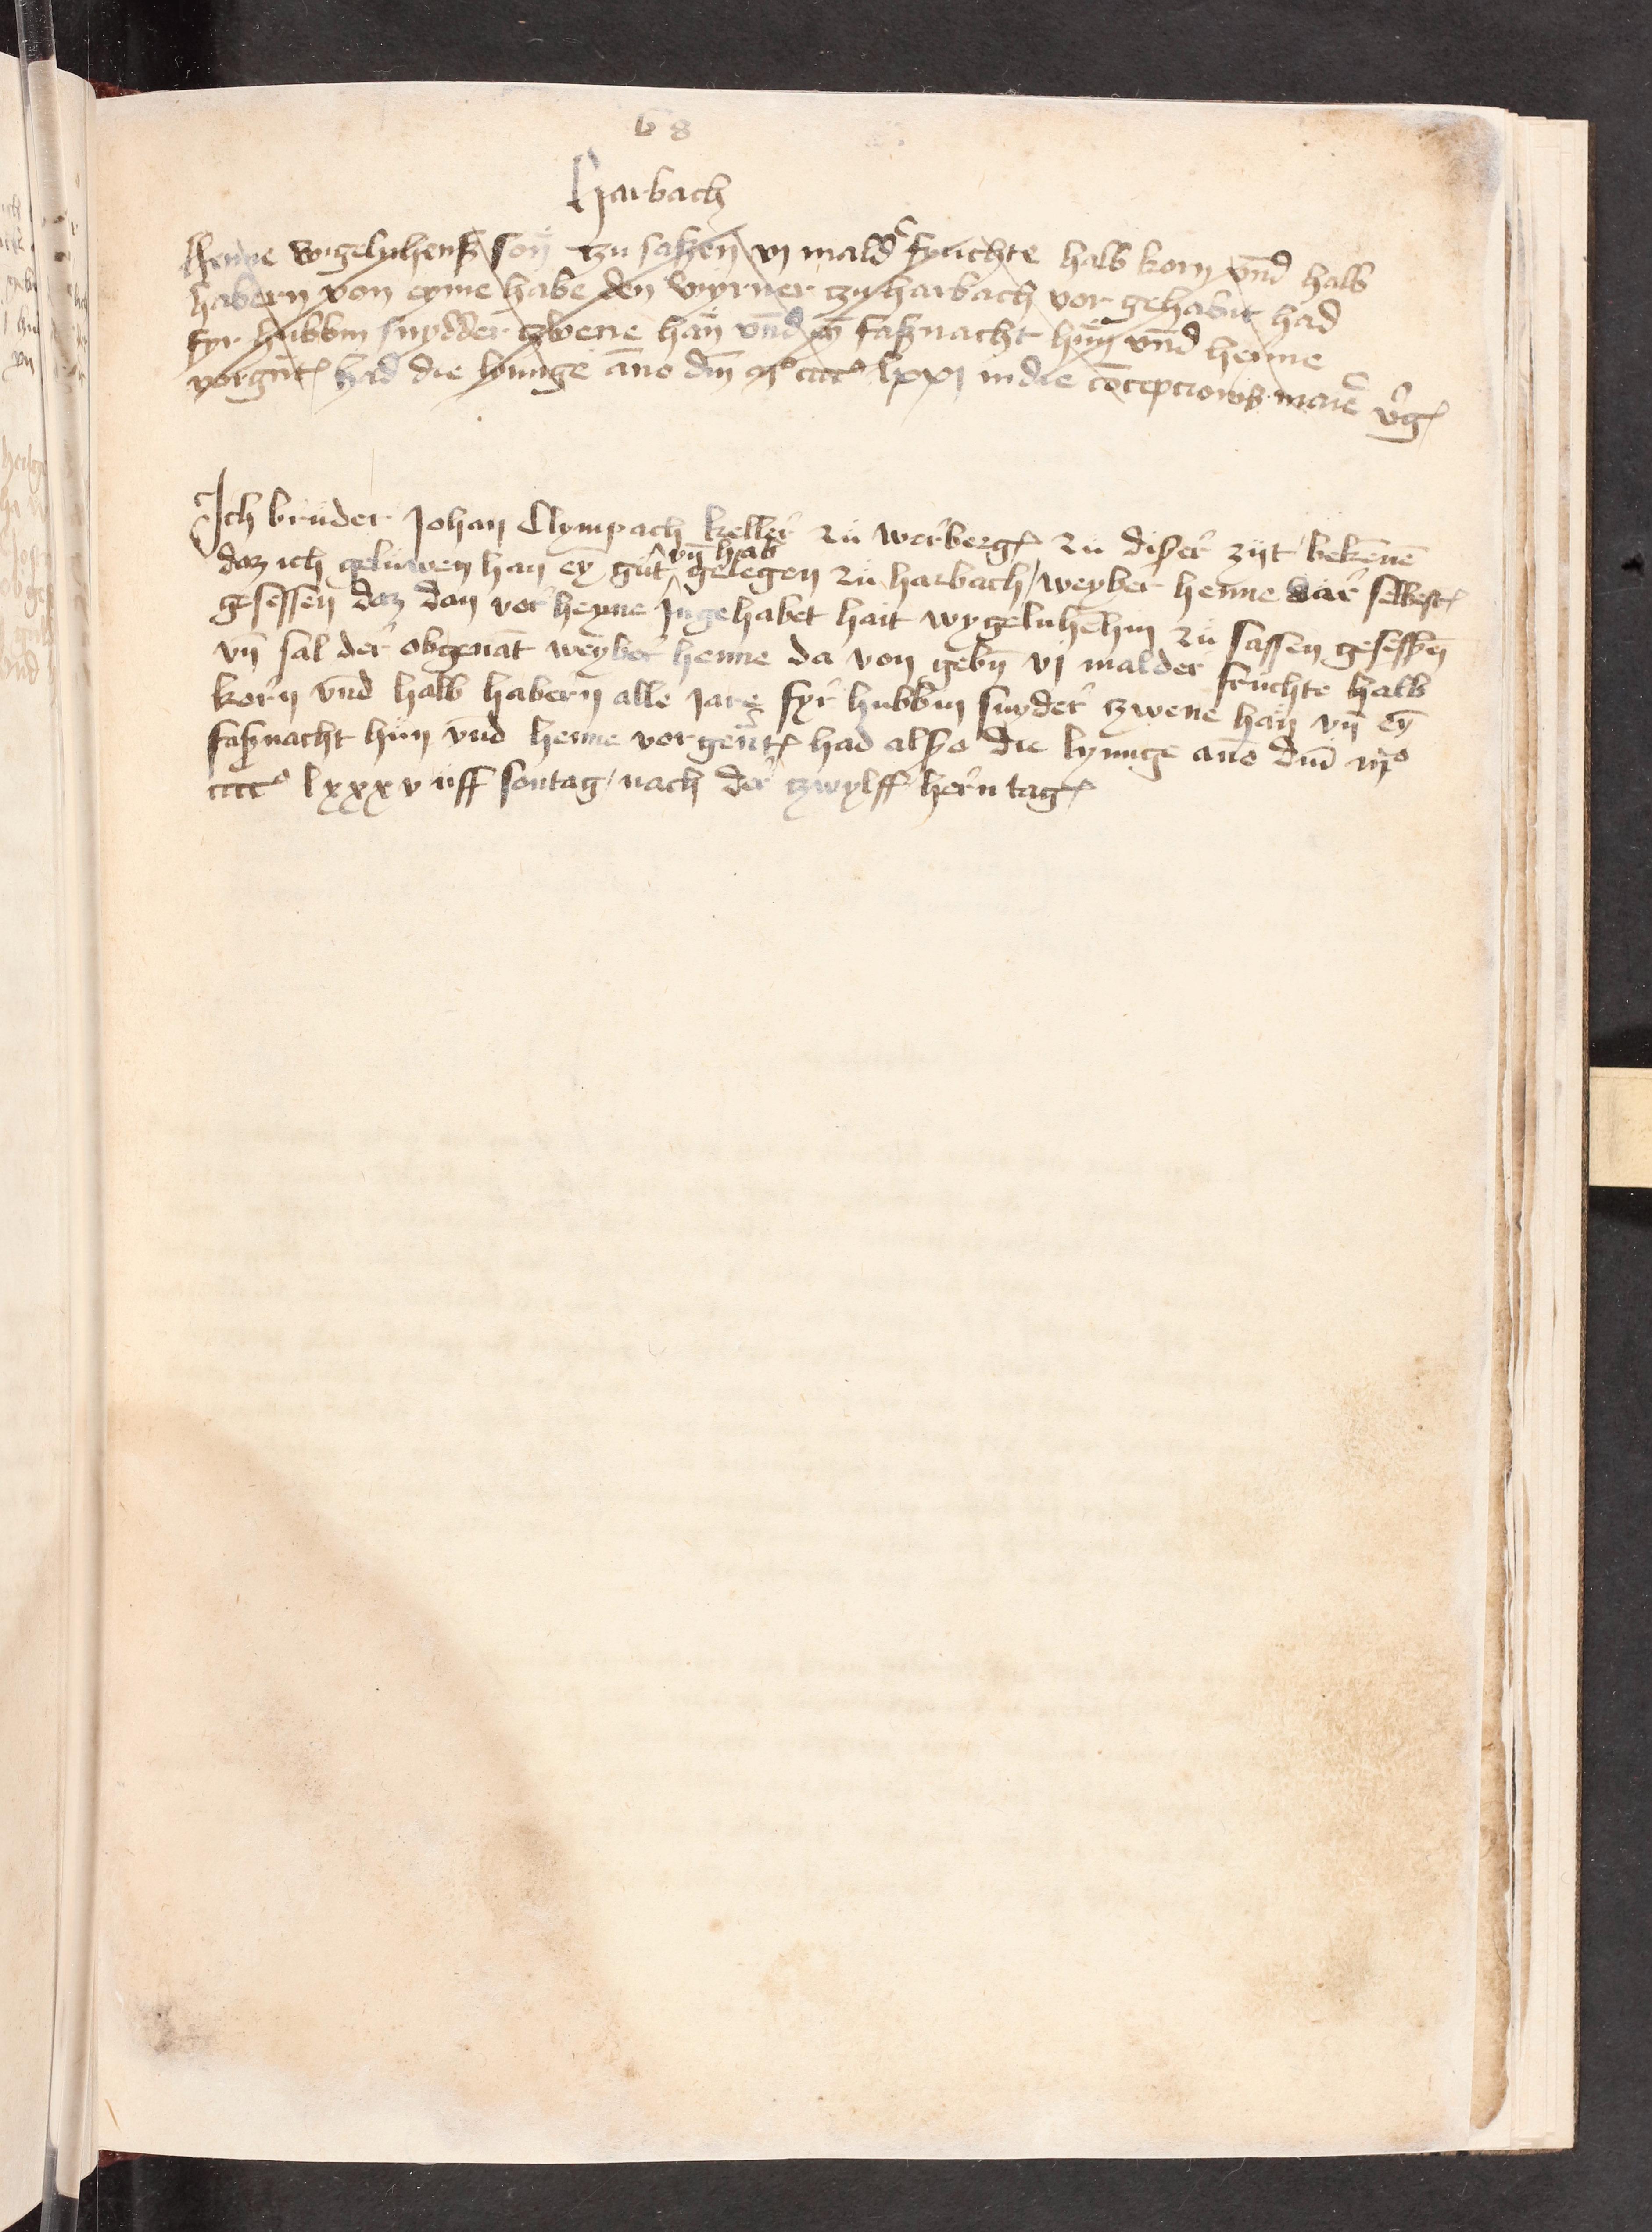 68
Harbach
Henne wigelnhenß son tzu saßen vi mald fruchte halb korn vnd halb
habern von eyme habe den wyrner tzu harbach vor gehabit had
fyr hubbin snydder tzwene han vnd eȳ faßnacht hun vnd henne
vorgnt had die lynnge āno dm̄ mº ccccº lxxi in die cōcepcionis marie v̾g
Ich bruder Johan Clympach keller zu werberg zu dißer zijt bekēnē
daz ich geluwen han eȳ gut vn̄ hab gelegen zu harbach / weyber henne dar selbest
gesessen daz dan vor heyne Ingehabet hait wygelnhēhin zu sassen gesesßen
vn̄ sal der obgenāt weyber henne da von gebn̄ vi malder fruchte halb
korn vnd halb habern alle jare fyr hubbin snyder tzwene han vn̄ eȳ
faßnacht hun vnd henne vorgent had alßo die lynnge āno dm̄ mº
ccccº lxxxv uff sontag / nach der tzwylff hern tag